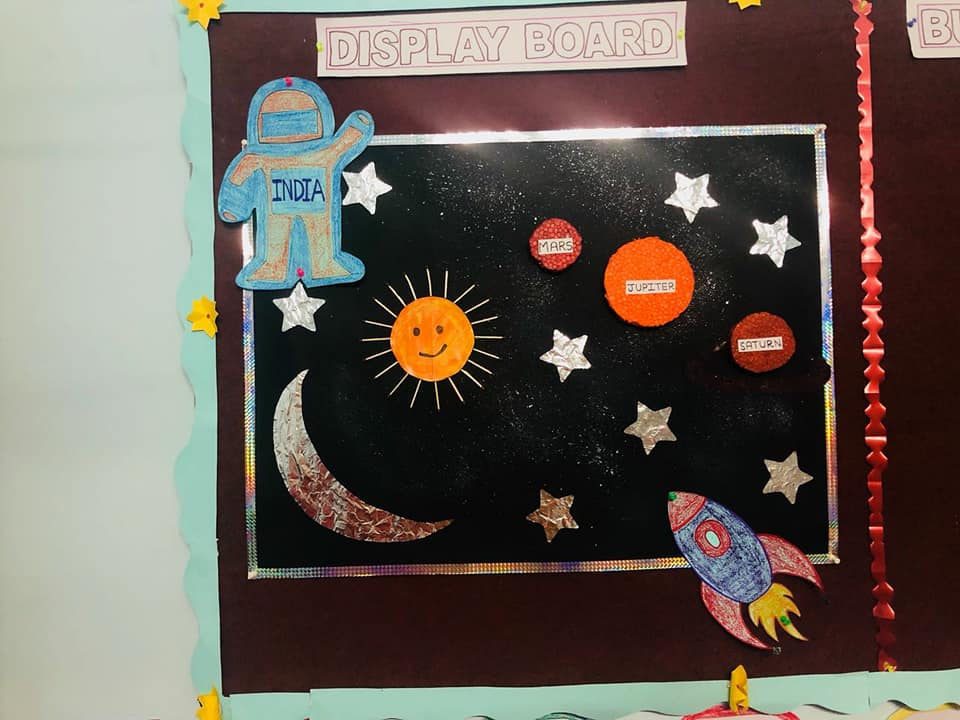 DISPLAY BOARD
BU
INDIA
MARS
JUPITER
SATURN